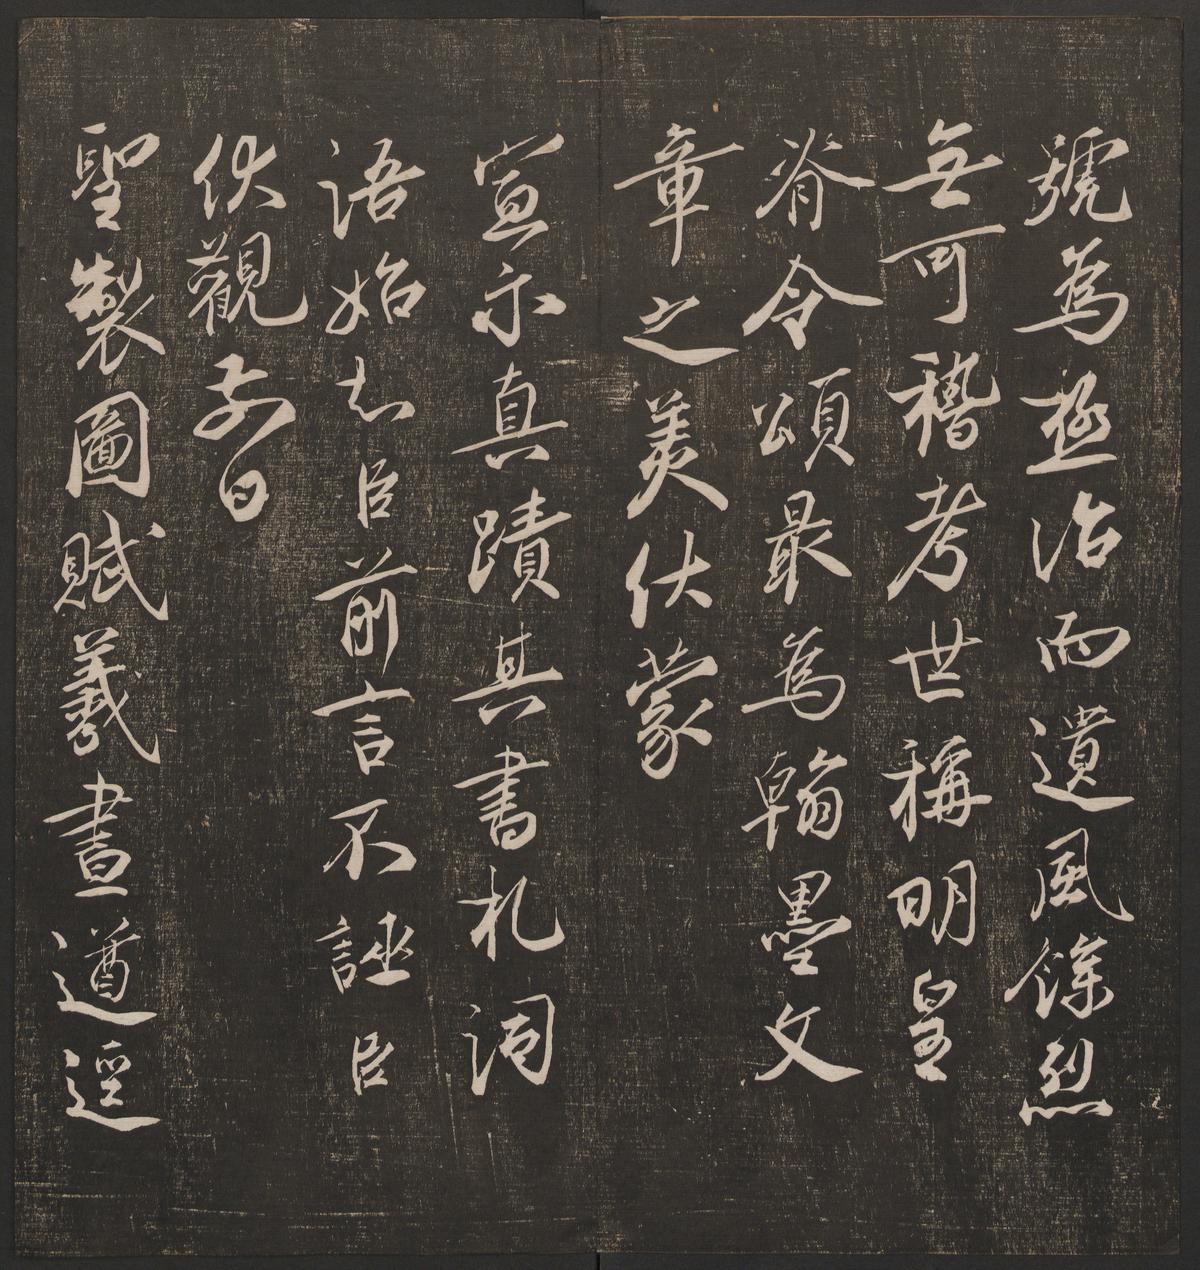 號為極治而遺風餘烈
無可稽考世稱明皇
脊令頌最為翰墨文
章之美伏蒙
宣示真蹟其書札詞
語始知臣前言不誣臣
伏觀前日
聖製圖賦義畫遒逕